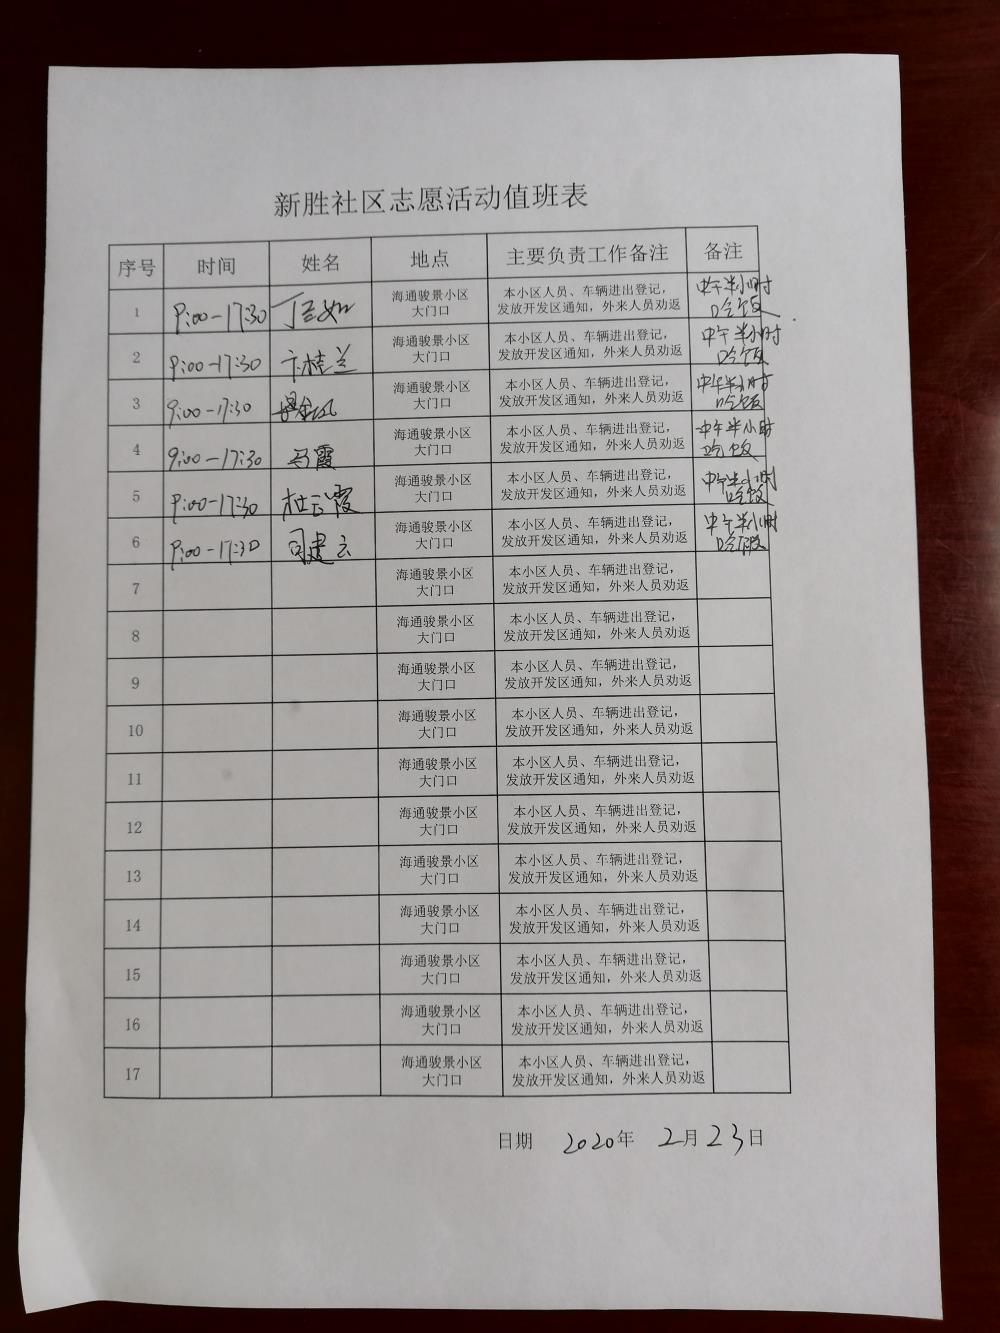 新胜社区志愿活动值班表
序号 时间 姓名 地点 主要负责工作备注 备注
1 9:00-17:30 海通骏景小区 本小区人员、车辆进出登记， 中午半小时
大门口 发放开发区通知，外来人员劝返 吃饭
2 9:00-17:30 卞桂兰 海通骏景小区 本小区人员、车辆进出登记， 中午半小时
大门口 发放开发区通知，外来人员劝返 吃饭
3 9:00-17:30 海通骏景小区 本小区人员、车辆进出登记， 中午半小时
大门口 发放开发区通知，外来人员劝返 吃饭
4 9:00-17:30 马霞 海通骏景小区 本小区人员、车辆进出登记， 中午半小时
大门口 发放开发区通知，外来人员劝返 吃饭
5 9:00-17:30 杜云霞 海通骏景小区 本小区人员、车辆进出登记， 中午半小时
大门口 发放开发区通知，外来人员劝返 吃饭
6 9:00-17:30 司建云 海通骏景小区 本小区人员、车辆进出登记， 中午半小时
大门口 发放开发区通知，外来人员劝返 吃饭
7 海通骏景小区 本小区人员、车辆进出登记，
大门口 发放开发区通知，外来人员劝返
8 海通骏景小区 本小区人员、车辆进出登记，
大门口 发放开发区通知，外来人员劝返
9 海通骏景小区 本小区人员、车辆进出登记，
大门口 发放开发区通知，外来人员劝返
10 海通骏景小区 本小区人员、车辆进出登记，
大门口 发放开发区通知，外来人员劝返
11 海通骏景小区 本小区人员、车辆进出登记，
大门口 发放开发区通知，外来人员劝返
12 海通骏景小区 本小区人员、车辆进出登记，
大门口 发放开发区通知，外来人员劝返
13 海通骏景小区 本小区人员、车辆进出登记，
大门口 发放开发区通知，外来人员劝返
14 海通骏景小区 本小区人员、车辆进出登记，
大门口 发放开发区通知，外来人员劝返
15 海通骏景小区 本小区人员、车辆进出登记，
大门口 发放开发区通知，外来人员劝返
16 海通骏景小区 本小区人员、车辆进出登记，
大门口 发放开发区通知，外来人员劝返
17 海通骏景小区 本小区人员、车辆进出登记，
大门口 发放开发区通知，外来人员劝返
日期 2020年 2月23日